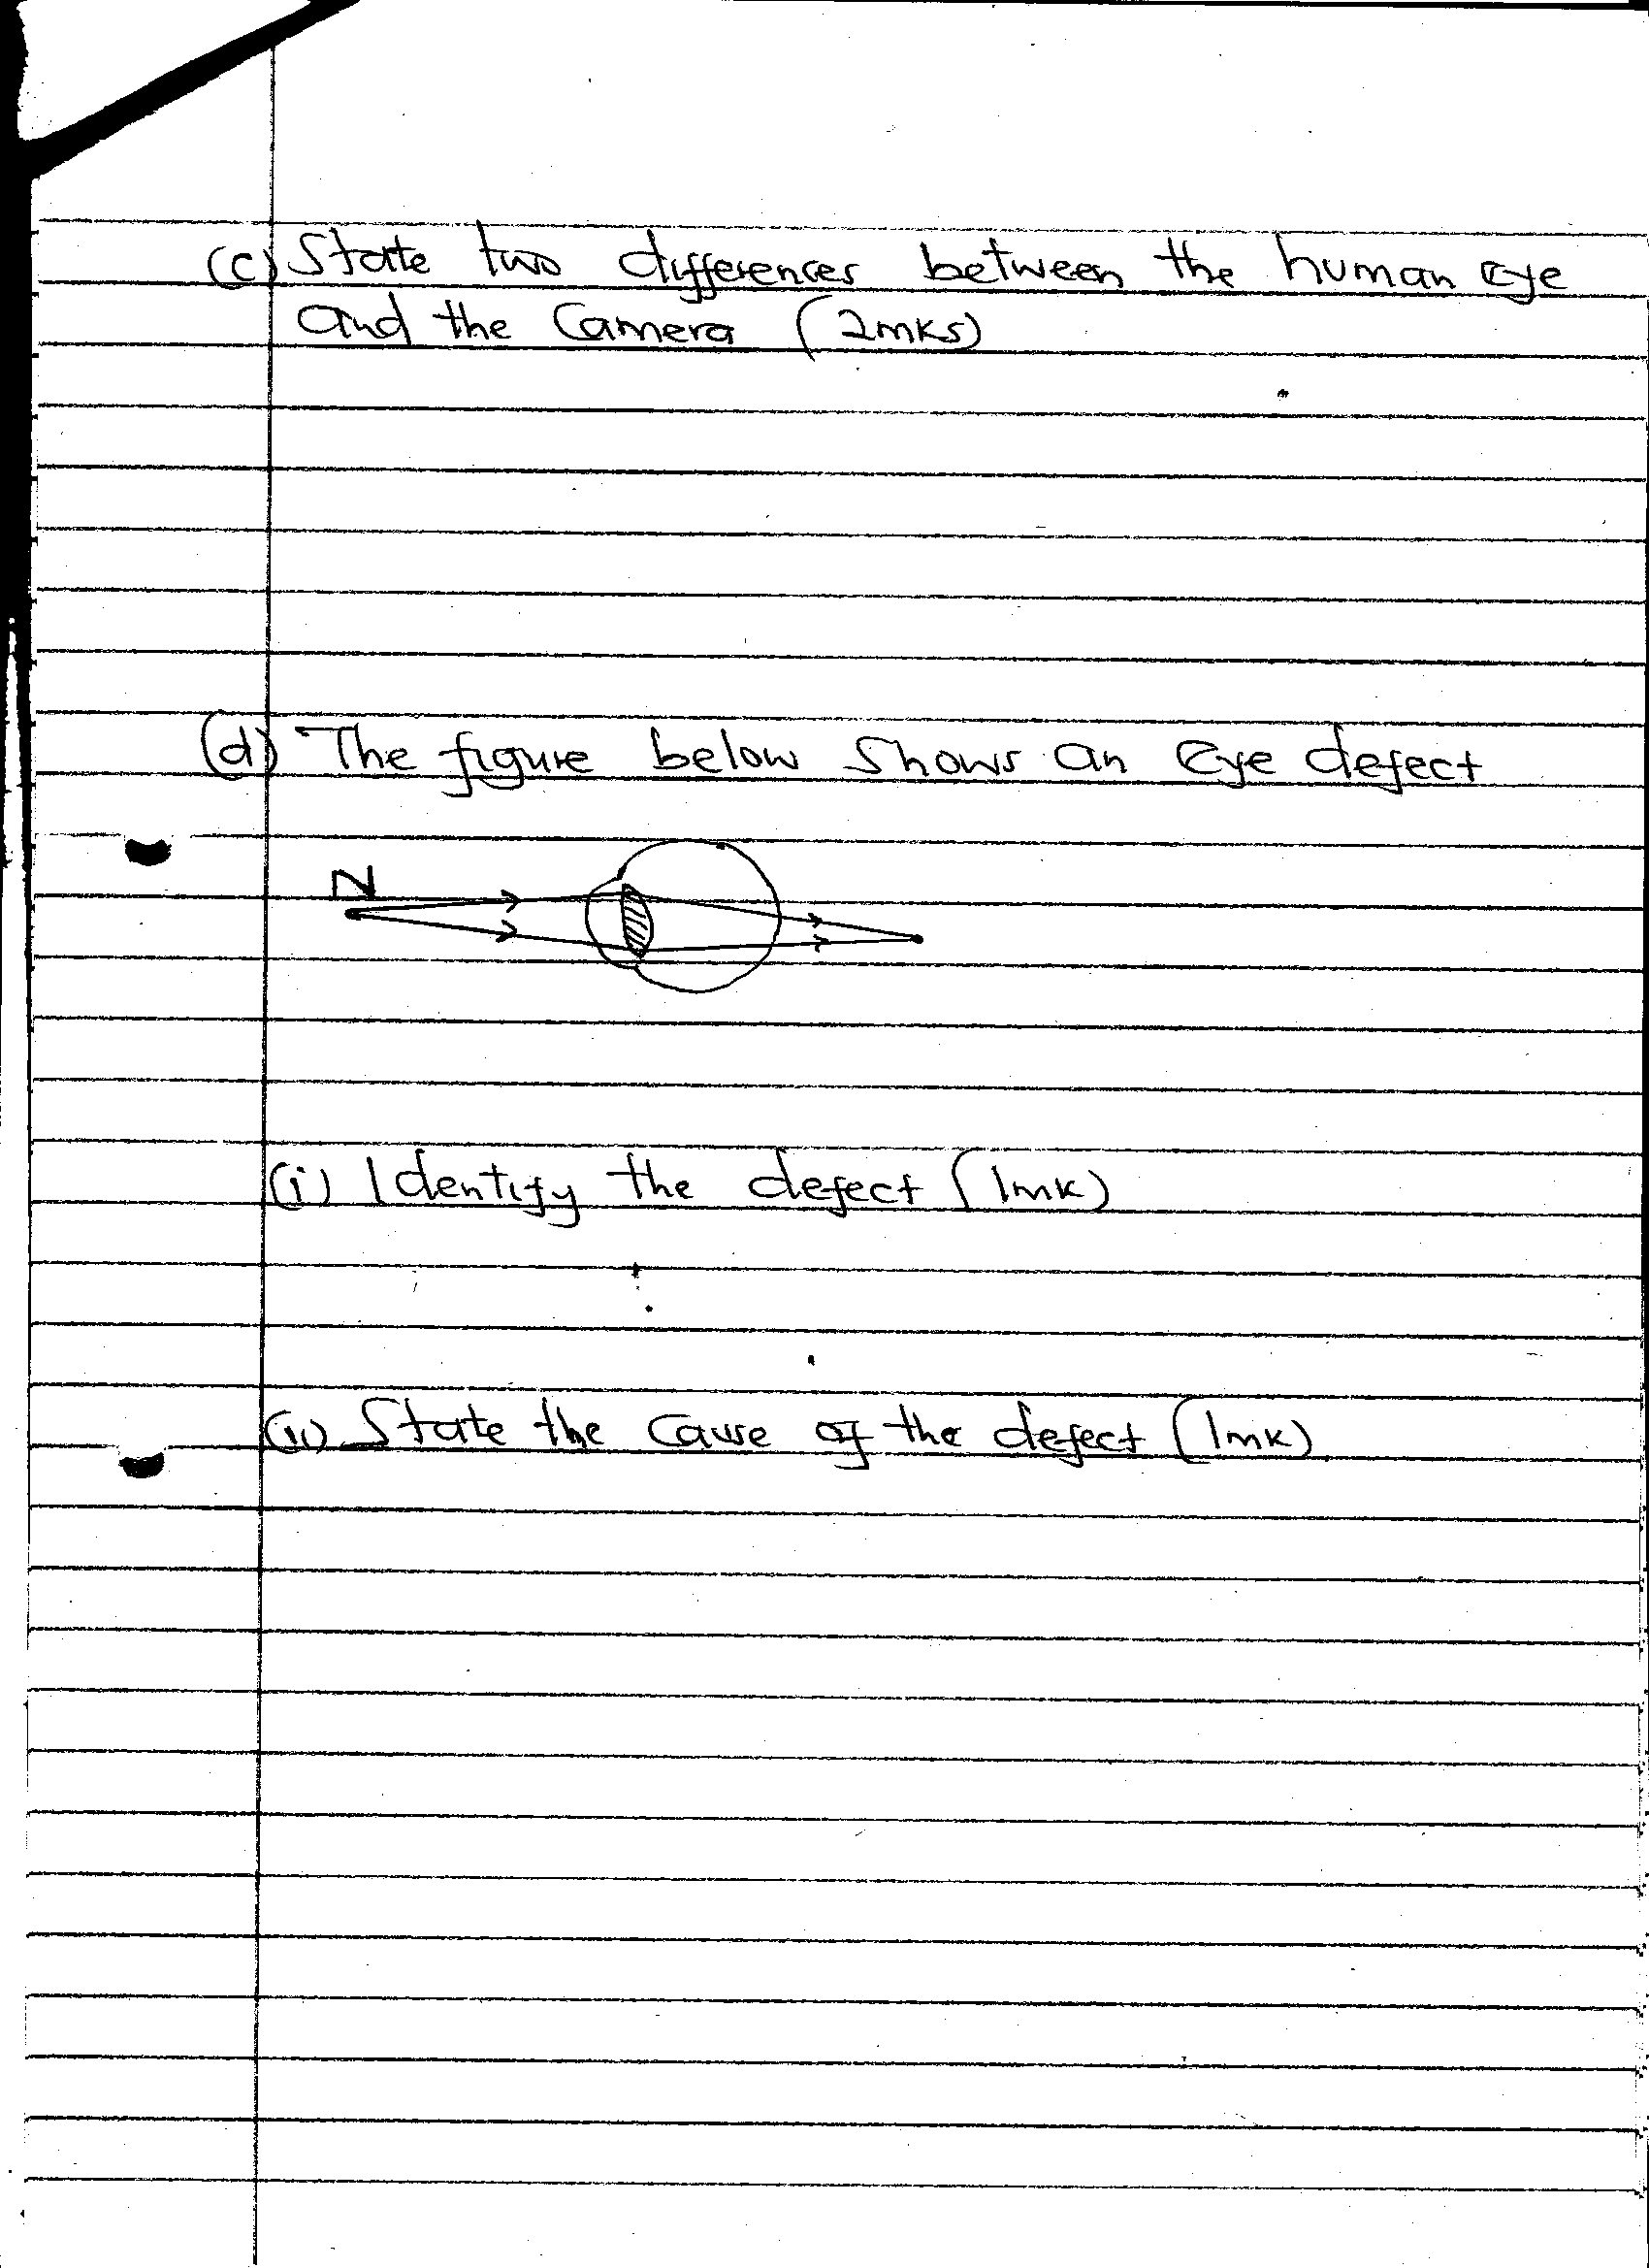 (c) State two differences between the human eye
and the Camera (2mks)
(d) The figure below shows an eye defect
N
(i) Identify the defect (1mk)
(ii) State the cause of the defect (1mk)